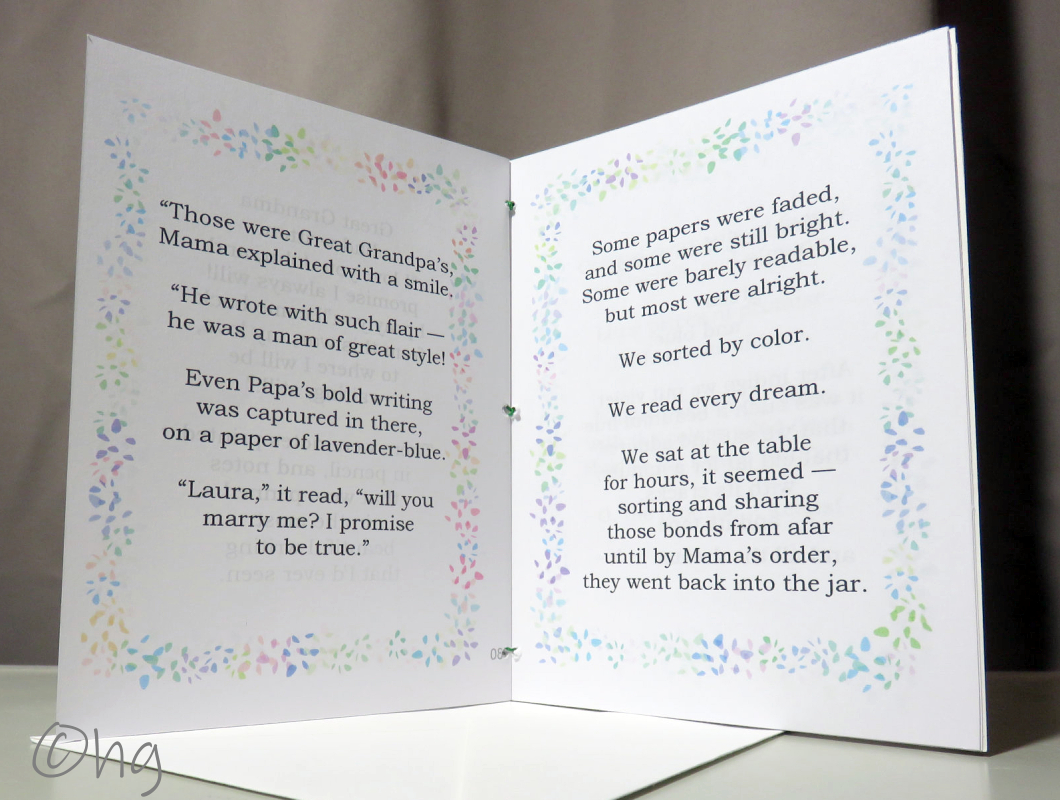 “Those were Great Grandpa’s,
Mama explained with a smile.
“He wrote with such flair —
he was a man of great style!
Even Papa’s bold writing
was captured in there,
on a paper of lavender-blue.
“Laura,” it read, “will you
marry me? I promise
to be true.”
08
Some papers were faded,
and some were still bright.
Some were barely readable,
but most were alright.
We sorted by color.
We read every dream.
We sat at the table
for hours, it seemed —
sorting and sharing
those bonds from afar
until by Mama’s order,
they went back into the jar.
©hg